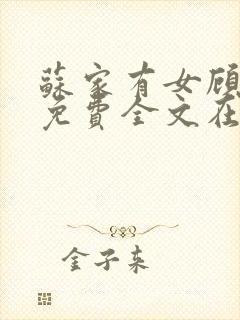 蘇家有女顧
免費全文在
金子来